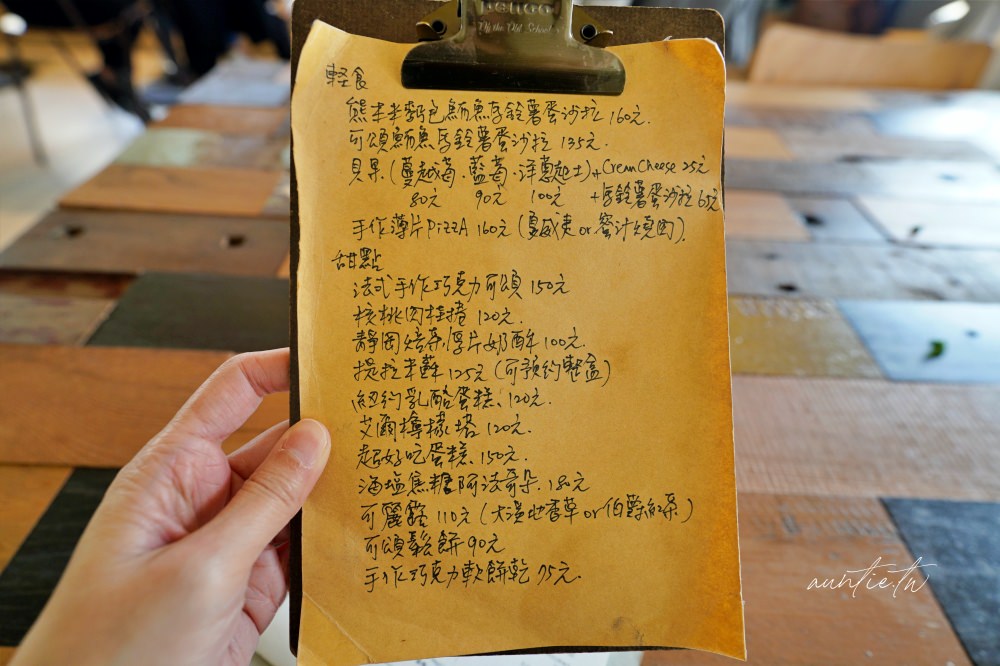 Of the Old School
軽食
熊本半麭包鮪魚馬鈴薯蛋沙拉 160元.
可頌鮪魚馬鈴薯蛋沙拉 135元.
貝果(蔓越莓.藍莓.洋蔥起士)+Cream Cheese 25元
80元 90元 100元 +馬鈴薯蛋沙拉 65元
手作薄片PizzA 160元(夏威夷 or 蜜汁燒肉).
甜點
法式手作巧克力可頌 150元
核桃肉桂捲 120元.
靜岡焙茶厚片奶酥 100元.
提拉米蘇 125元(可預約整盒)
紐約乳酪蛋糕、120元.
艾爾檸檬塔 120元.
超好吃蛋糕、150元.
海塩焦糖阿法奇朵.180元
可麗露 110元(大溪地香草 or 伯爵紅茶)
可頌鬆餅 90元
手作巧克力軟餅乾 75元.
auntie.tw